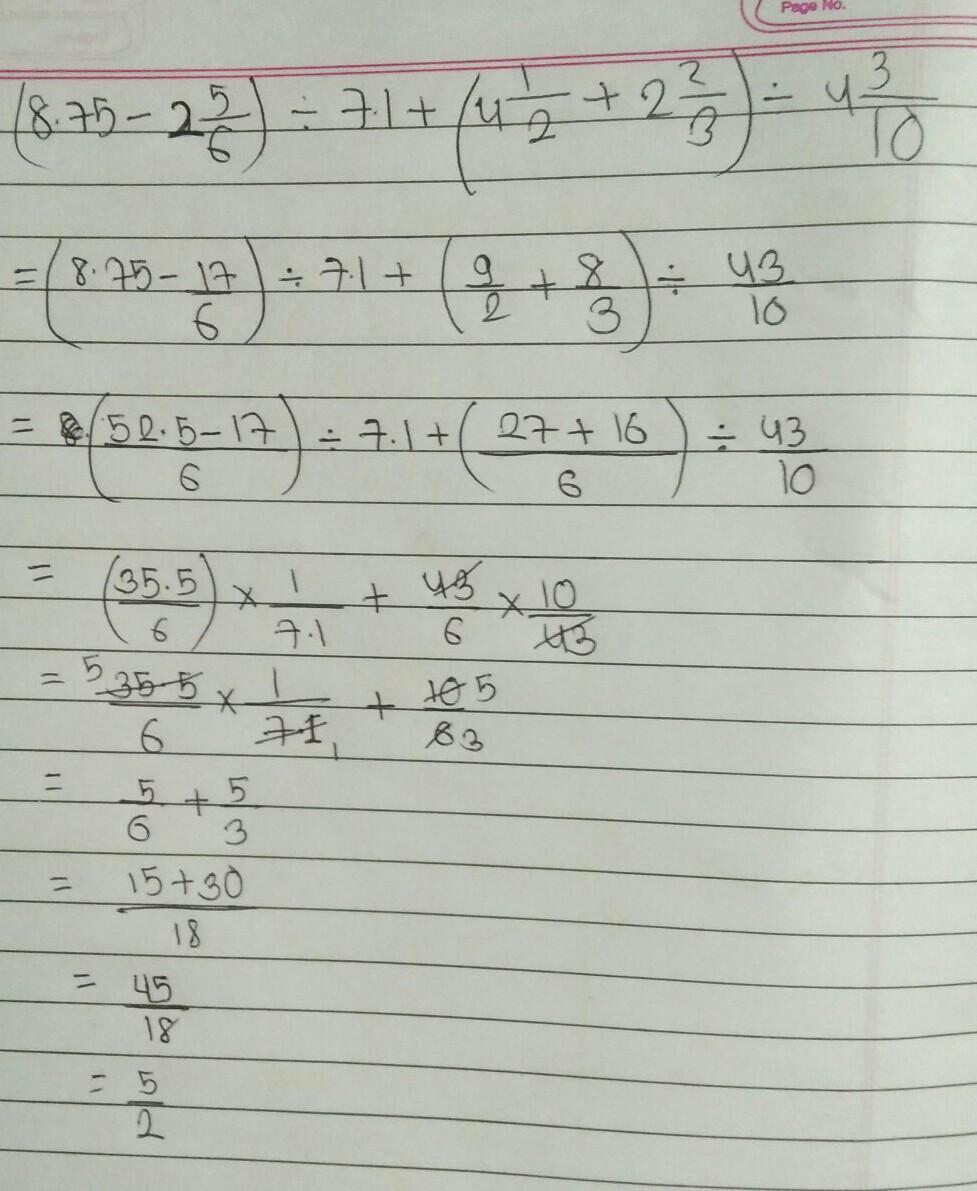 Page No.
(8.75 - 2 5/6) ÷ 7.1 + (4 1/2 + 2 2/3) ÷ 4 3/10
= (8.75 - 17/6) ÷ 7.1 + (9/2 + 8/3) ÷ 43/10
= ((52.5 - 17)/6) ÷ 7.1 + ((27 + 16)/6) ÷ 43/10
= (35.5/6) × 1/7.1 + 43/6 × 10/43
= 5 35.5/6 × 1/7.1 1 + 10 5/6 3
= 5/6 + 5/3
= (15 + 30)/18
= 45/18
= 5/2